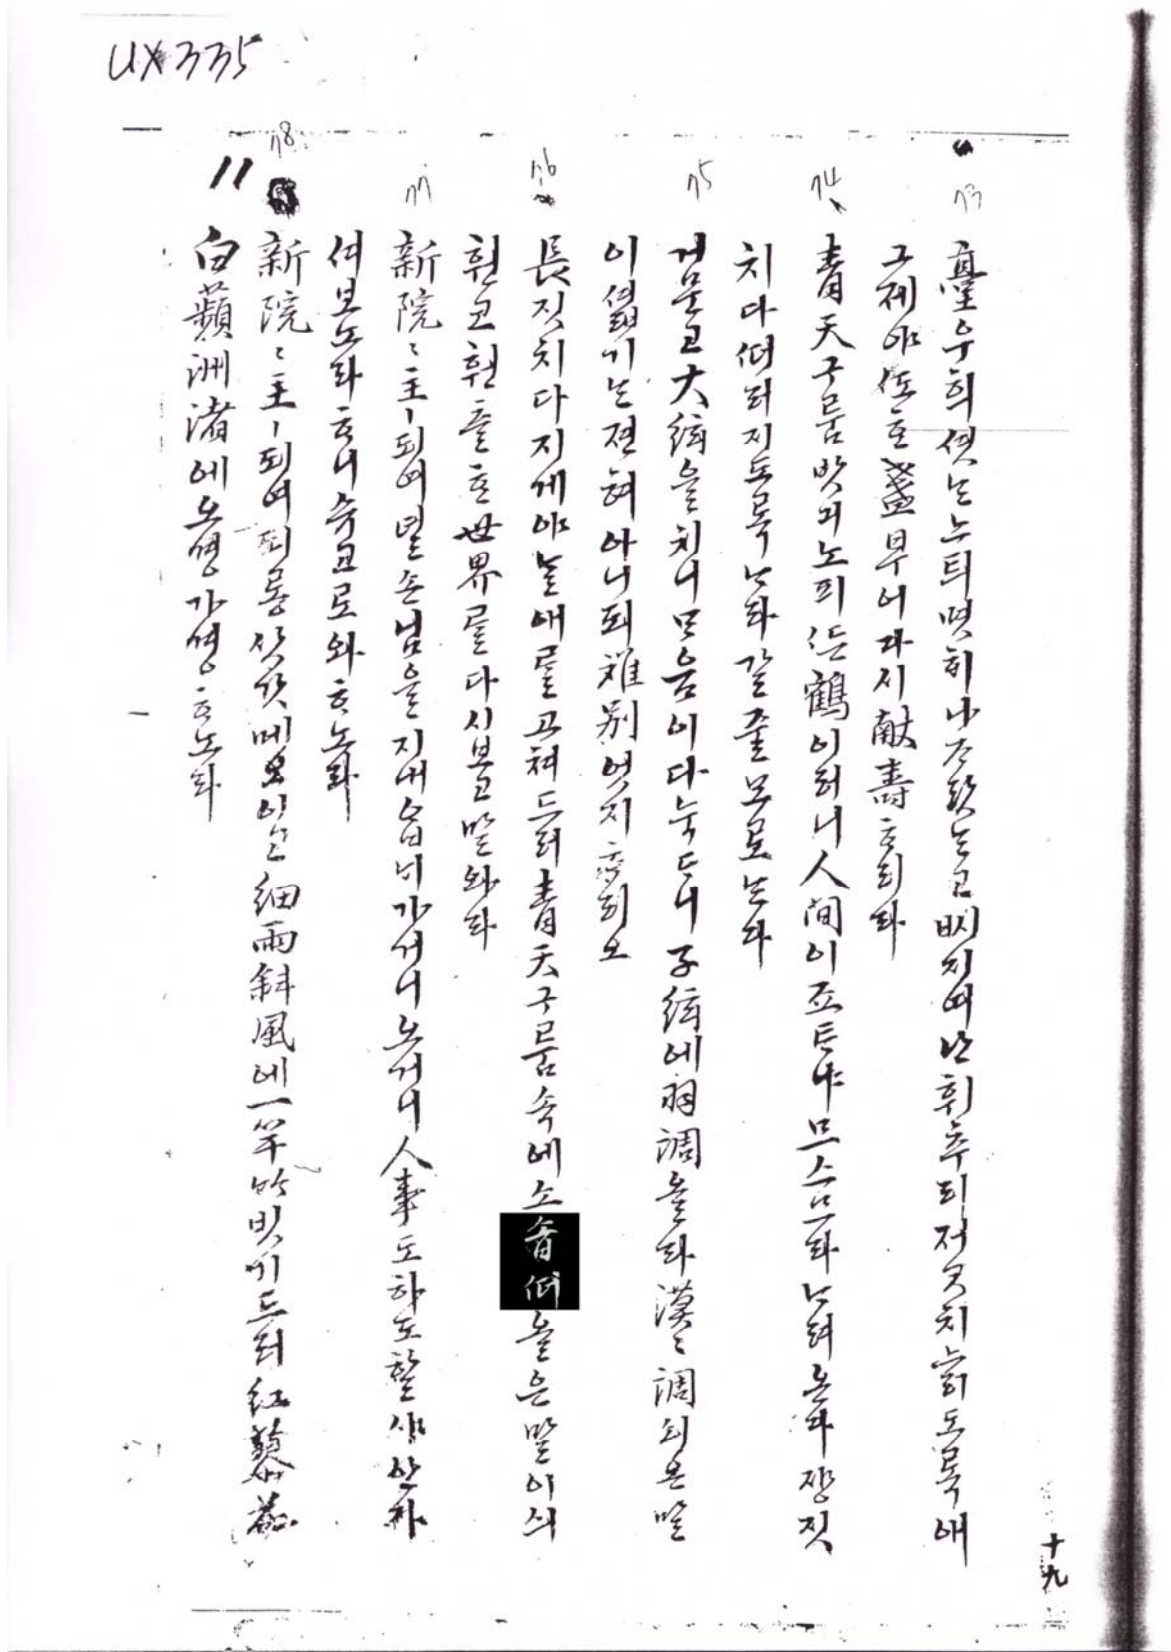 UX335
73
臺 우희 셧는 느틔 몃 히나 ᄌᆞ랏는고 ᄡᅵ 지여 난 휘초리 저 ᄀᆞᆺ치 늙도록애
그제야 ᄯᅩ ᄒᆞᆫ 盞 부어 다시 獻壽 ᄒᆞ리라
74
靑天 구룸 밧긔 노피 ᄯᅳᆫ 鶴이러니 人間이 죠트냐 므스므라 ᄂᆞ려온다 쟝짓
치 다 ᄠᅥ러지도록 ᄂᆞ라갈 줄 모로ᄂᆞᆫ다
75
거믄고 大絃을 치니 ᄆᆞ음이 다 눅드니 子絃에 羽調 올라 漠〻調 쇠온 말
이 셟기는 젼혀 아니되 離別 엇지 ᄒᆞ리오
76
長 짓치 다 지게야 ᄂᆞᆯ애를 고쳐 드러 靑天 구룸 속에 소솝 ᄠᅥ올은 말이 싀
훤코 훤츨ᄒᆞᆫ 世界를 다시 보고 말와라
77
新院〻主ㅣ 되여 녈 손님을 지내옵ᄂᆡ 가거니 오거니 人事도 하도할샤 안자
셔 보노라 ᄒᆞ니 슈고로와 ᄒᆞ노라
78
新院〻主ㅣ 되여 되롱 삿갓 메오 이고 細雨斜風에 一竿竹 빗기 드러 紅蓼花
11
白蘋洲渚에 오명가명 ᄒᆞ노라
十九